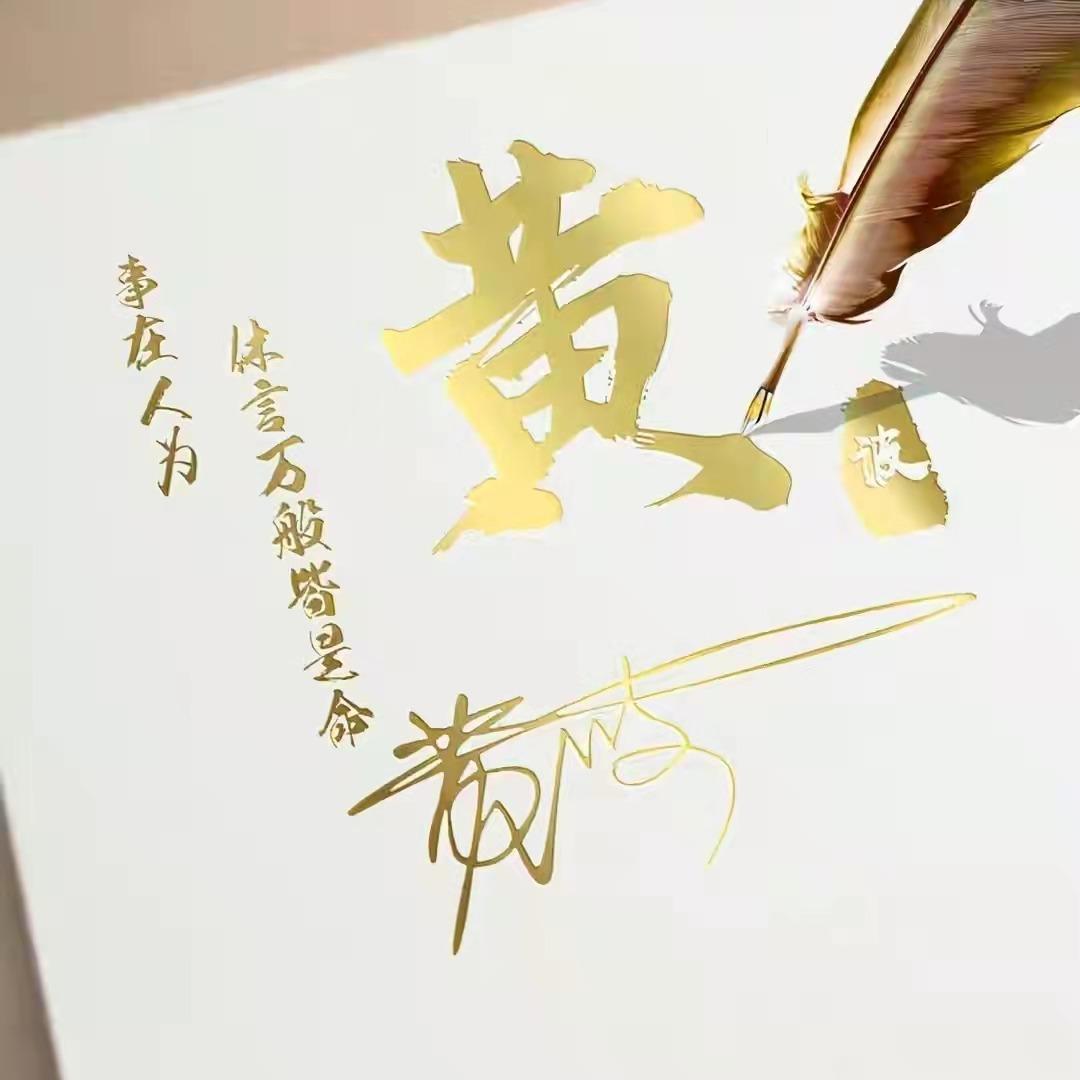 事在人为
休言万般皆是命
黄
波
黄波